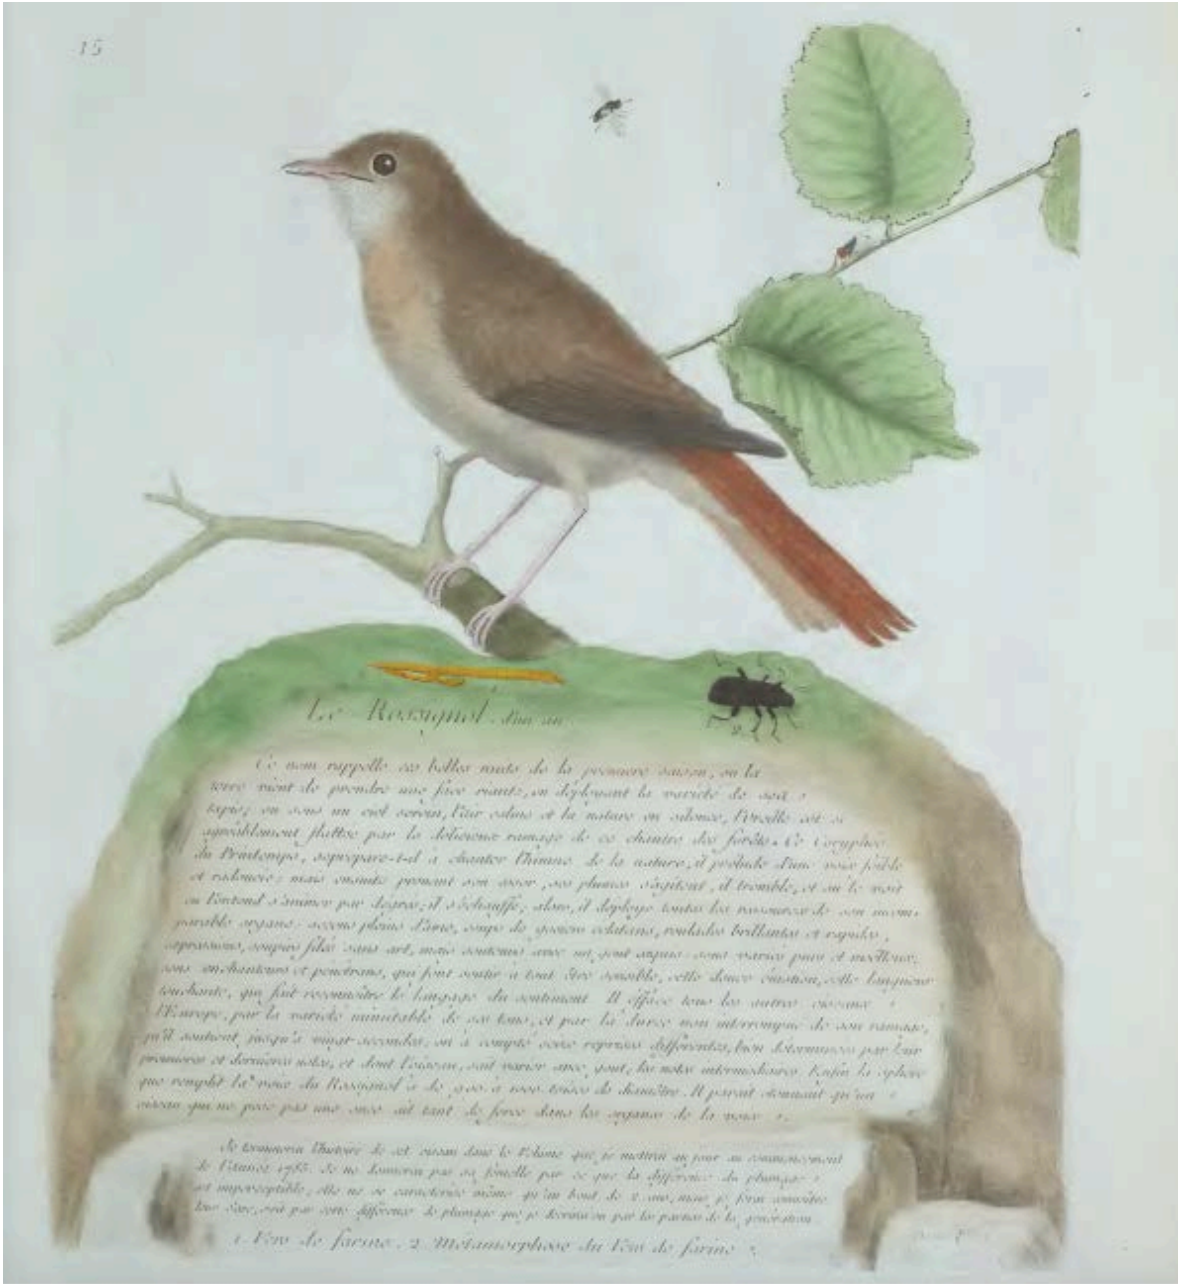 15
Le Rossignol d'un an.
Ce nom rappelle ces belles nuits de la premiere saison, ou la
terre vient de prendre une face riante, en déployant la varieté de ses
tapis; ou sous un ciel serein, l'air calme et la nature en silence, l'oreille est si
agréablement flattée par le délicieux ramage de ce chantre des forêts. Ce Coryphée
du Printemps, se prepare-t-il à chanter l'himne de la nature, il prelude d'une voix foible
et radoucie; mais ensuite prenant son essor, ses plumes s'agitent, il tremble, et on le voit
on l'entend s'animer par degrés; il s'échauffe; alors, il déploye toutes les ressources de son incom-
parable organe: accens pleins d'ame, coups de gosiers eclatans, roulades brillantes et rapides,
expressions, soupirs filés sans art, mais soutenus avec un gout exquis sons variés purs et moelleux;
sons enchanteurs et pénétrans, qui font sentir à tout être sensible, cette douce émotion, cette langueur
touchante, qui fait reconnoître le langage du sentiment. Il éfface tous les autres oiseaux
l'Europe, par la varieté inimitable de ses tons, et par la durée non interrompue de son ramage,
qu'il soutient jusqu'à vingt secondes, on à compté seize reprises differentes, bien determinées par leur
premieres et dernieres notes, et dont l'oiseau, sait varier avec gout, les notes intermediaires. Enfin la sphere
que remplit la voix du Rossignol à de 900 à 1000 toises de diamêtre. Il parait étonnant qu'un
oiseau qui ne pese pas une once ait tant de force dans les organes de la voix.
Je terminerai l'histoire de cet oiseau dans le Volume que je mettrai au jour au commencement
de l'année 1785. Je ne donnerai pas sa femelle par ce que la différence du plumage
est imperceptible, elle ne se caractérise même qu'au bout de 2 ans, mais je ferai connoître
leur sexe, soit par cette différence de plumage que je decrirai ou par les parties de la génération
1. Vers de farine. 2. Metamorphose du Vers de farine.
2